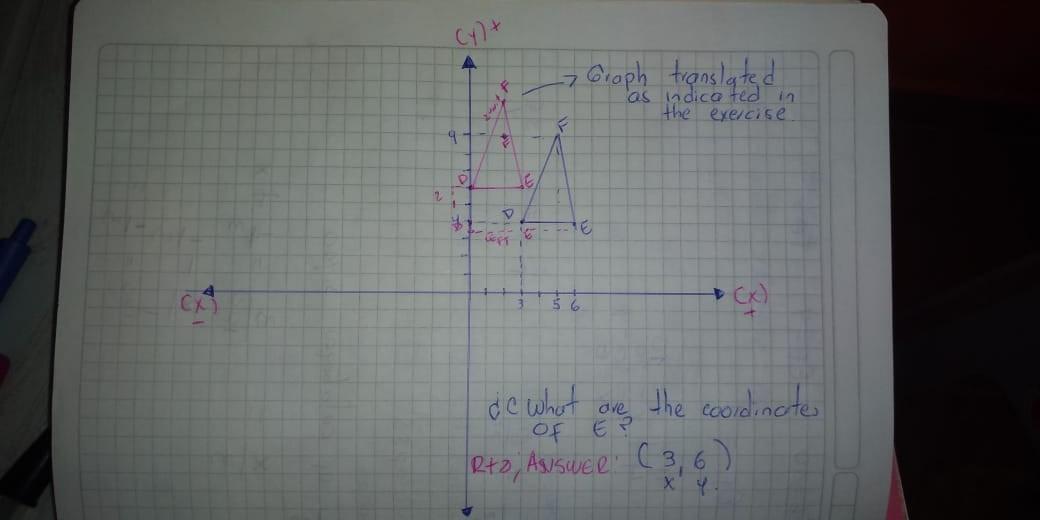 (y)+
Graph translated
as indicated in
the exercise.
F
F
9
F
D
E
2
D
E
E
(x)
-
3
5
6
(x)
+
¿C What are the coordinates
OF E?
R+a, ANSWER: (3, 6)
x y.